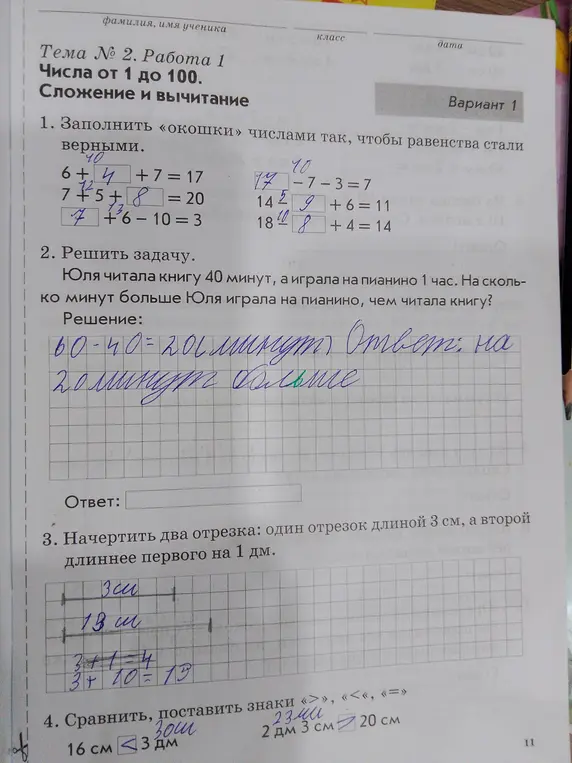 фамилия, имя ученика класс дата
Тема № 2. Работа 1
Числа от 1 до 100.
Сложение и вычитание
Вариант 1
1. Заполнить «окошки» числами так, чтобы равенства стали
верными.
10 10
6 + 4 + 7 = 17 17 – 7 – 3 = 7
12 5
7 + 5 + 8 = 20 14 – 9 + 6 = 11
13 10
7 + 6 – 10 = 3 18 – 8 + 4 = 14
2. Решить задачу.
Юля читала книгу 40 минут, а играла на пианино 1 час. На сколь-
ко минут больше Юля играла на пианино, чем читала книгу?
Решение:
60 - 40 = 20 (минут) Ответ: на
20 минут больше
Ответ:
3. Начертить два отрезка: один отрезок длиной 3 см, а второй
длиннее первого на 1 дм.
3см
13 см
3 + 1 = 4
3 + 10 = 13
4. Сравнить, поставить знаки «>», «<«, «=»
30см 23см
16 см < 3 дм 2 дм 3 см > 20 см
11